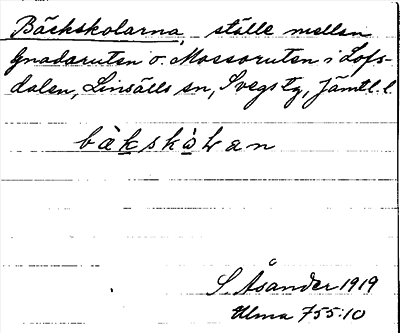 Bäckskolarna, ställe mellan
Gnadaruten o. Mossoruten i Lofs-
dalen, Linsälls sn, Svegs tg, Jämtl. l.
S Åsander 1919
Ulma 755:10